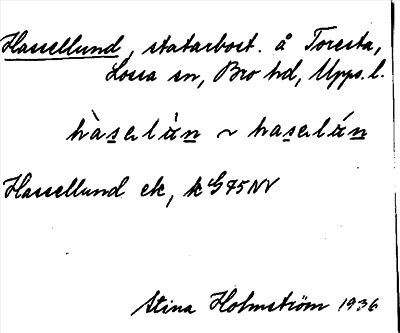 Hassellund, statarbost. å Toresta,
Lossa sn, Bro hd, Upps. l.
hàselàn ~ haselán
Hassellund ek, k G45NV
Stina Holmström 1936